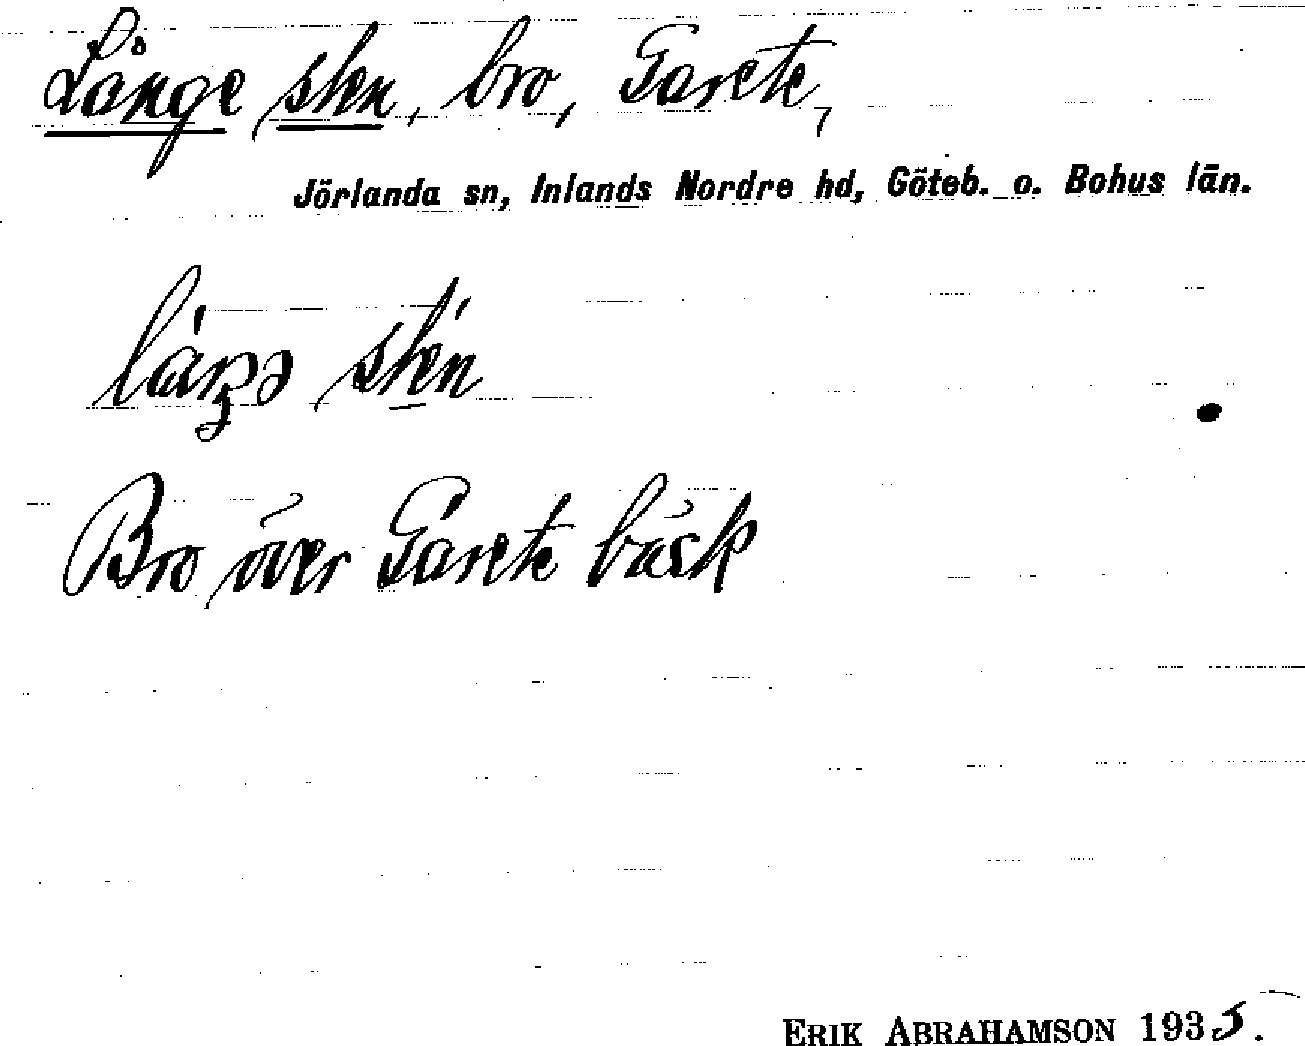 Långe sten, bro, Garete,
Jörlanda sn, Inlands Nordre hd, Göteb. o. Bohus län.
sten
Bro över Garete bäck
ERIK ABRAHAMSON 1935.